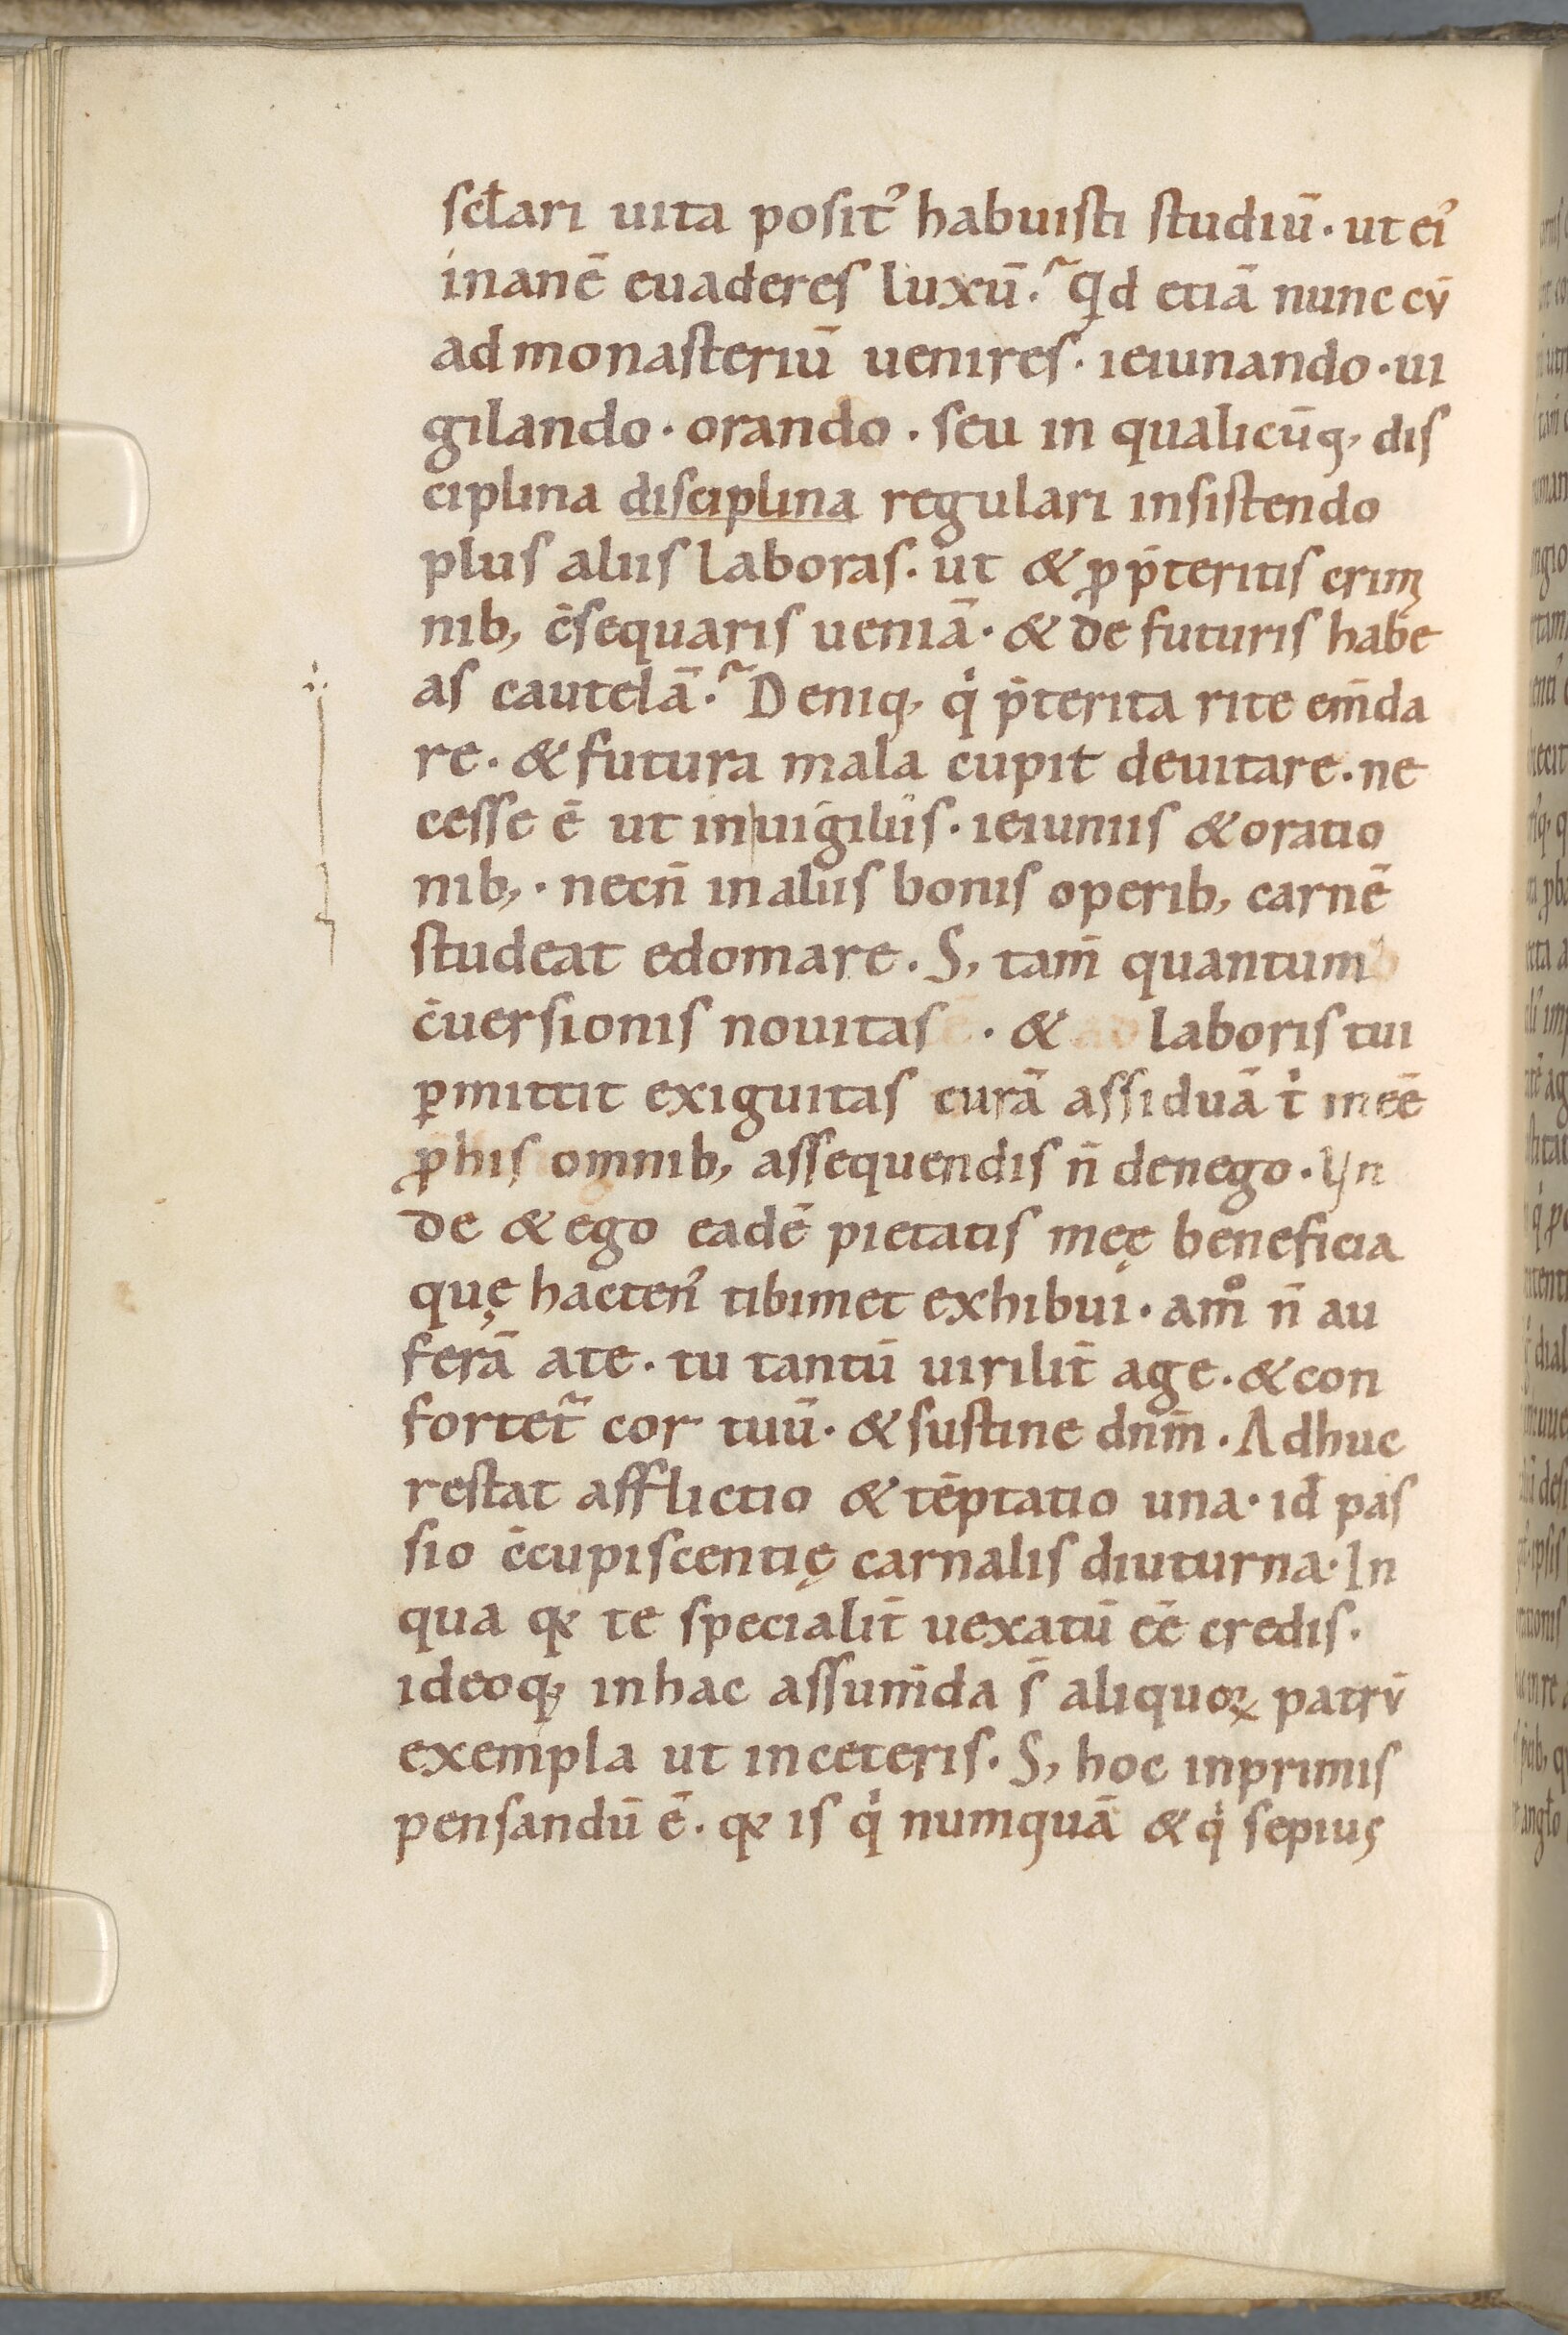 scłari uita posit᾿ habuisti studiū· ut ei᾿
inanē euaderes luxū.ᷓ Qd etiā nunc cū
ad monasteriū uenires· ieiunando· ui
gilando· orando· seu in qualicūq, dis
ciplina disciplina regulari insistendo
plus aliis laboras· ut & ꝓ p̄teritis crimi
nib, c̄sequaris ueniā· & de futuris habe
as cautelā.ᷓ Deniq, qi p̄terita rite em̄da
re· & futura mala cupit deuitare· ne
cesse ē ut in uigiliis· ieiuniis & oratio
nib,· necn̄ in aliis bonis operib, carnē
studeat edomare. S, tam̄ quantum
c̄uersionis nouitas · & laboris tui
ꝑmittit exiguitas curā assiduā ti inēē
ꝓ his omnib, assequendis n̄ denego· Vn
de & ego eadē pietatis meę beneficia
quę hacten᾿ tibimet exhibui· am̊ n̄ au
ferā a te· tu tantū uirilit̄ age· & con
fortetᷓ cor tuū· & sustine dnm̄· Adhuc
restat afflictio & tēptatio una· id̄ pas
sio c̄cupiscentię carnalis diuturna· In
qua qꝛ te specialit̄ uexatū ēē credis·
ideoq, in hac assum̄da s̄ aliquoꝝ patrū
exempla ut in ceteris· S, hoc inprimis
pensandū ē· qꝛ is qi numquā & qi sepius